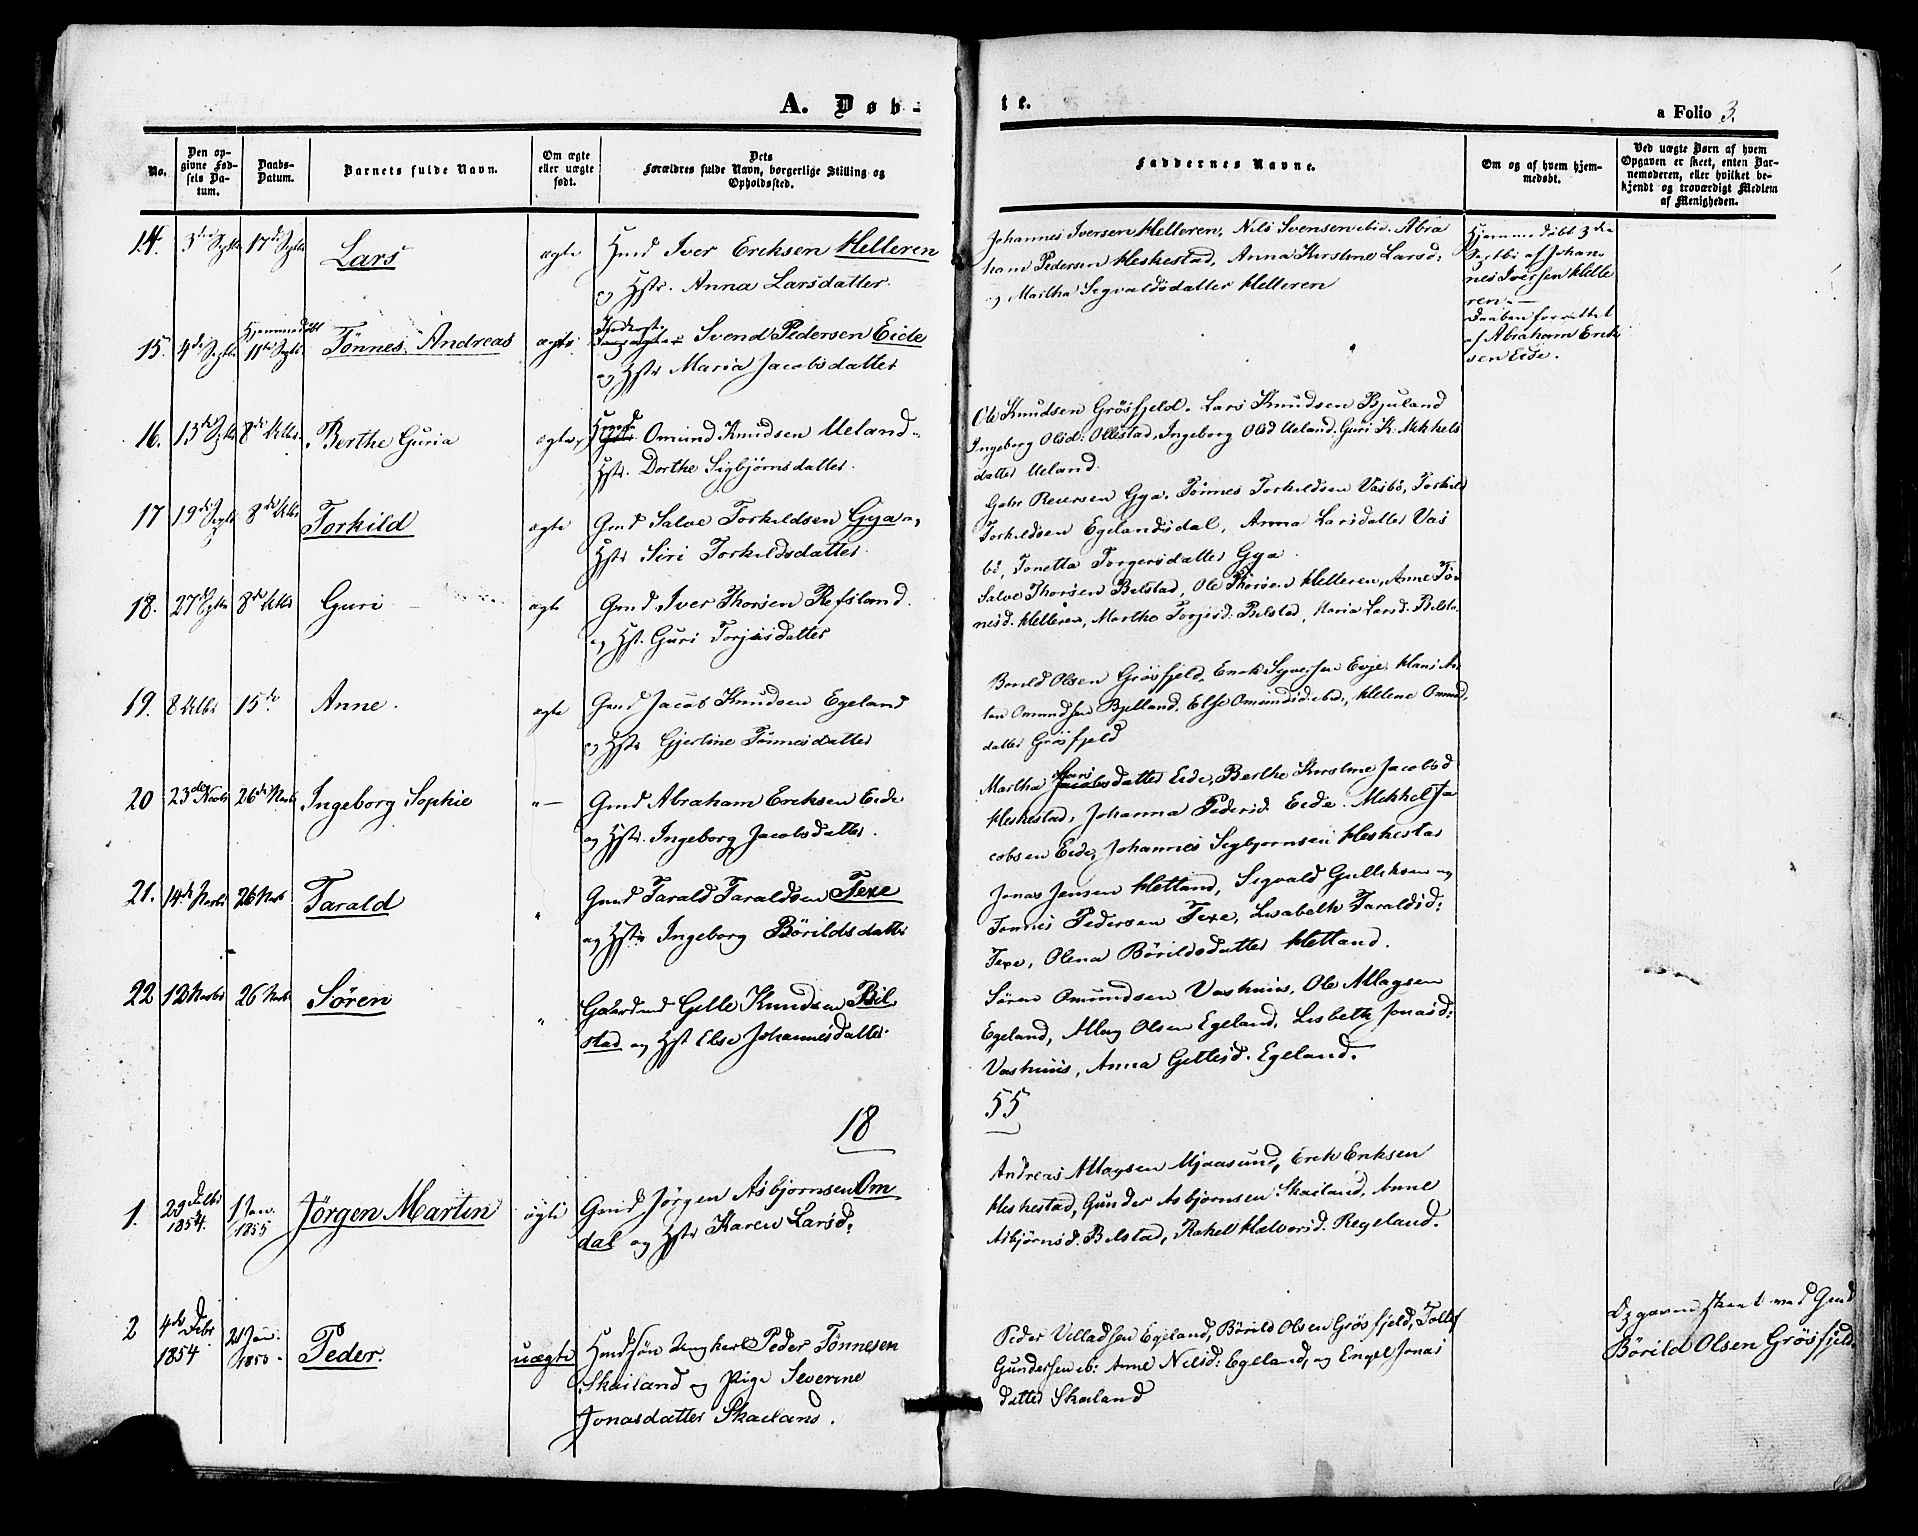 A. Døb-
te.
a Folio 3.
No.
Den op-
givne Fød-
sels Da-
tum.
Daabs-
Datum.
Barnets fulde Navn.
Om ægte
eller uægte
født.
Dets
Forældres fulde Navn, borgerlige Stilling og
Opholdssted.
Faddernes Navne.
Om og af hvem hjem-
medøbt.
Ved uægte Børn af hvem
Opgaven er skeet, enten Bar-
nemoderen, eller hvilket be-
kjendt og troværdigt Medlem
af Menigheden.
14. 3die Septbr 17de Septbr Lars ægte Gmd Iver Ericksen Helleren
og Hstr. Anna Larsdatter.
Johannes Iversen Helleren, Nils Svensen ibid. Abra
ham Pedersen Heskestad, Anna Kirstine Larsd:
og Martha Segvaldsdatter Helleren
Hjemmedøbt 3die
Septbr af Johan-
nes Iversen Helle
ren.
15. 4de Septbr Hjemmedøbt 11te Septbr Tönnes Andreas ægte Svend Pedersen Eide
og Hstr Maria Jacobsdatter
Daaben forrettet
af Abraham Erik
sen Eide.
16. 13de Septbr 8de Octbr. Berthe Guria ægte Omund Knudsen Ueland
Hstr. Dorthe Sigbjørnsdatter.
Ole Knudsen Grösfjeld. Lars Knudsen Bjuland
Ingeborg Olsd: Ollestad, Ingeborg Olsd Ueland. Guri K. Mikkels
datter Ueland.
17 19de Septbr 8de Octbr Torkild ægte Gmd Salve Torkildsen Gya og
Hstr Siri Torkildsdatter.
Gabr Reiersen Gya. Tönnes Torkildsen Vasbö, Torkild
Torkildsen Egelandsdal, Anna Larsdatter Vas
bö, Tonetta Torgersdatter Gya.
18. 27de Septbr 8de Octbr Guri ægte Gmd Iver Thorsen Refsland.
og Hst. Guri Torjusdatter
Salve Thorsen Belstad, Ole Thorsen Helleren, Anne Tön
nesd. Helleren, Martha Torjesd. Bilstad, Maria Larsd. Bilsta.
19. 8 Octbr 15de Anne. ægte Gmd Jacob Knudsen Egeland
og Hstr Gjertine Tönnesdatter
Borild Olsen Grösfjeld, Erik Sigversen Evje, Hans
Omundsen Bjelland, Else Omundsd. ibd., Helene Omund
datter Grösfjeld
20 23de Novbr 26de Novbr Ingeborg Sophie "— Gmd Abraham Ericksen Eide
og Hstr. Ingeborg Jacobsdatter.
Martha Larsdatter Eide, Berthe Kirstine Jacobsd
Heskestad, Johanna Pedersd. Eide. Mikkel Ja
cobsen Eide, Johannes Segbjornsen Heskestad
21. 14de Novbr 26 Novb Tarald " Gmd Tarald Taraldsen Texe
og Hstr Ingeborg Börildsdatter
Jonas Jensen Hetland, Segvald Gulliksen og
Tonnes Pedersen Texe, Lisabeth Taraldsd:
Texe, Olena Börildsdatter Hetland.
22 12 Novbr 26 Novb Sören " Gaardmd Gelle Knudsen Bil
stad og Hst Else Johannesdatter.
Sören Omundsen Vashuus, Ole Allagsen
Egeland, Allag Olsen Egeland, Lisbeth Jonasd:
Vashuus, Anna Gellesd. Egeland.
18
55
1. 29 Decbr 1854. 1 Jan. 1855 Jörgen Martin ægte Gmd Jörgen Asbjornsen Om
dal og Hstr Karen Larsd:
Andreas Allagsen Mjaasund, Erick Eriksen
Heskestad, Gunder Asbjornsen Skailand, Anne
Asbjörnsd. Bilstad, Rakel Halvorsd. Regeland.
2 4de Debr 1854 Jan: Peder. uægte Gmdsön Ungkarl Peder Tönnesen
Skailand og Pige Severine
Jonasdatter Skailand.
Peder Villadsen Egeland, Börild Olsen Grösfjeld, Tollef
Gundersen ib: Anne Nilsd: Egeland, og Engel Jonas
datter Skailand
Opgaven skeet ved Gmd
Börild Olsen Grösfjeld.